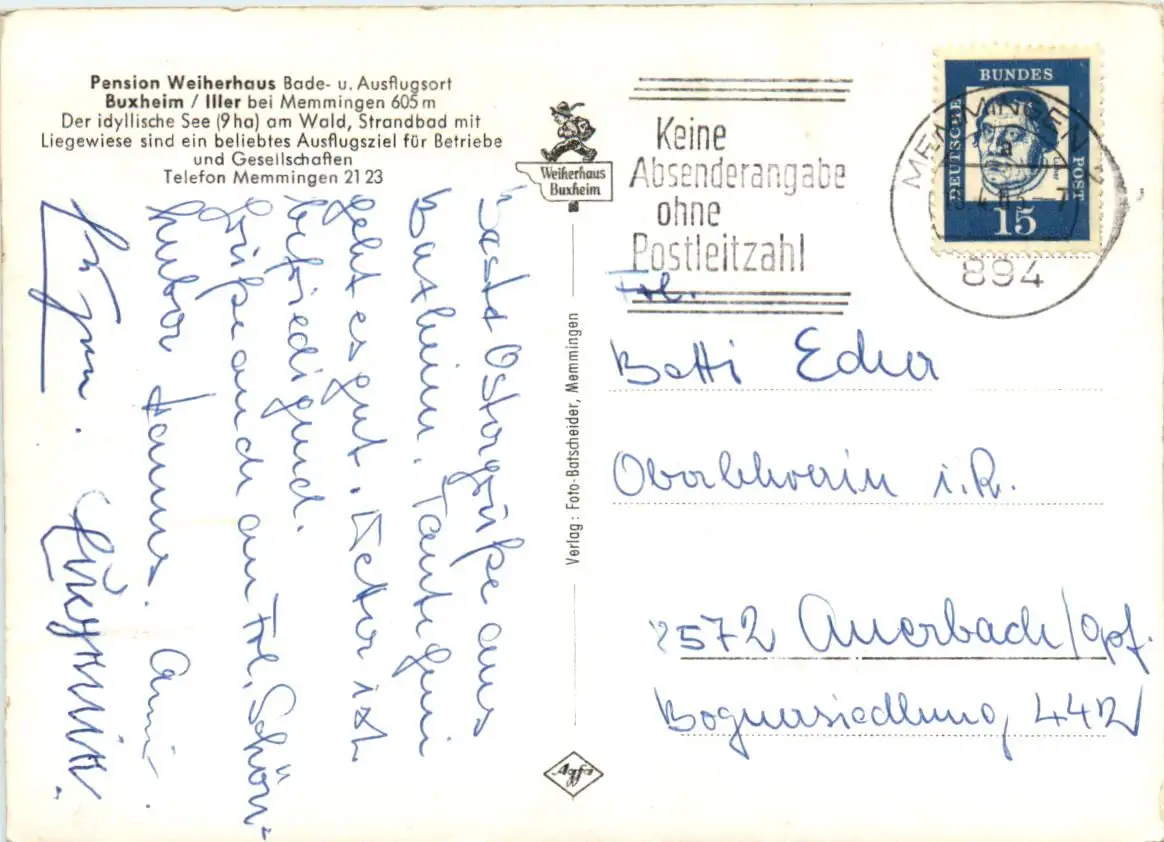 Pension Weiherhaus Bade- u. Ausflugsort
Buxheim / Iller bei Memmingen 605 m
Der idyllische See (9 ha) am Wald, Strandbad mit
Liegewiese sind ein beliebtes Ausflugsziel für Betriebe
und Gesellschaften
Telefon Memmingen 21 23
Weiherhaus
Buxheim
Keine
Absenderangabe
ohne
Postleitzahl
DEUTSCHE
BUNDES
POST
15
MEMMINGEN
894
Beste Ostergrüße aus
Buxheim. Tante
geht es gut. Wetter ist
befriedigend.
Grüße auch an Frl. Schön-
huber
Verlag: Foto-Batscheider, Memmingen
Agfa
Frl.
Betti Eder
i. R.
8572 Auerbach/Opf.
Bognersiedlung, 442